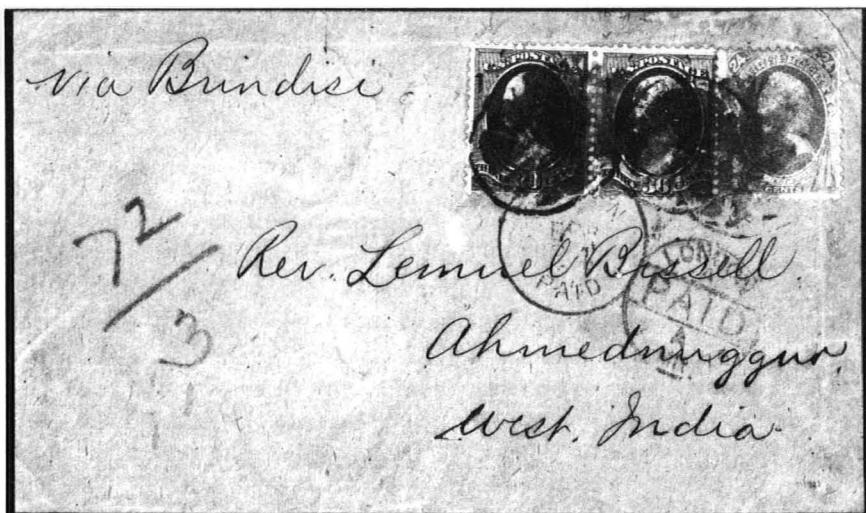 via Brindisi
U.S. POSTAGE
U.S. POSTAGE
CENTS
72
3
PAID
LONDON
PAID
Rev. Lemuel Bissell.
Ahmednuggur.
West. India